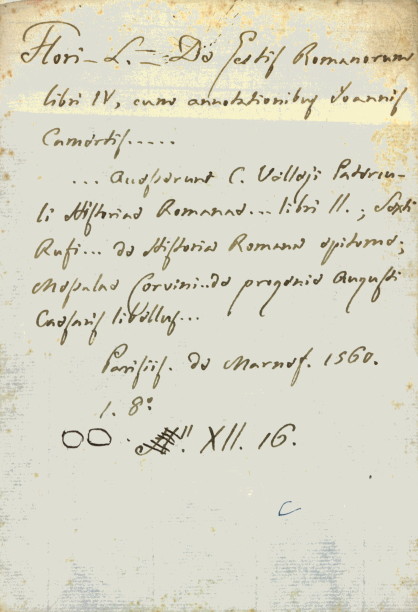 Flori - L. = De Gestis Romanorum
libri IV, cum annotationibus Joannis
Camertis.....
... Accesserunt C. Velleji Patercu-
li Historiae Romanae... libri II.; Sexti
Rufi... de Historia Romana epitome;
Messalae Corvini.. de progenie Augusti
Caesaris libellus...
Parisiis. de Marnef. 1560.
1. 8º
XII. 16.